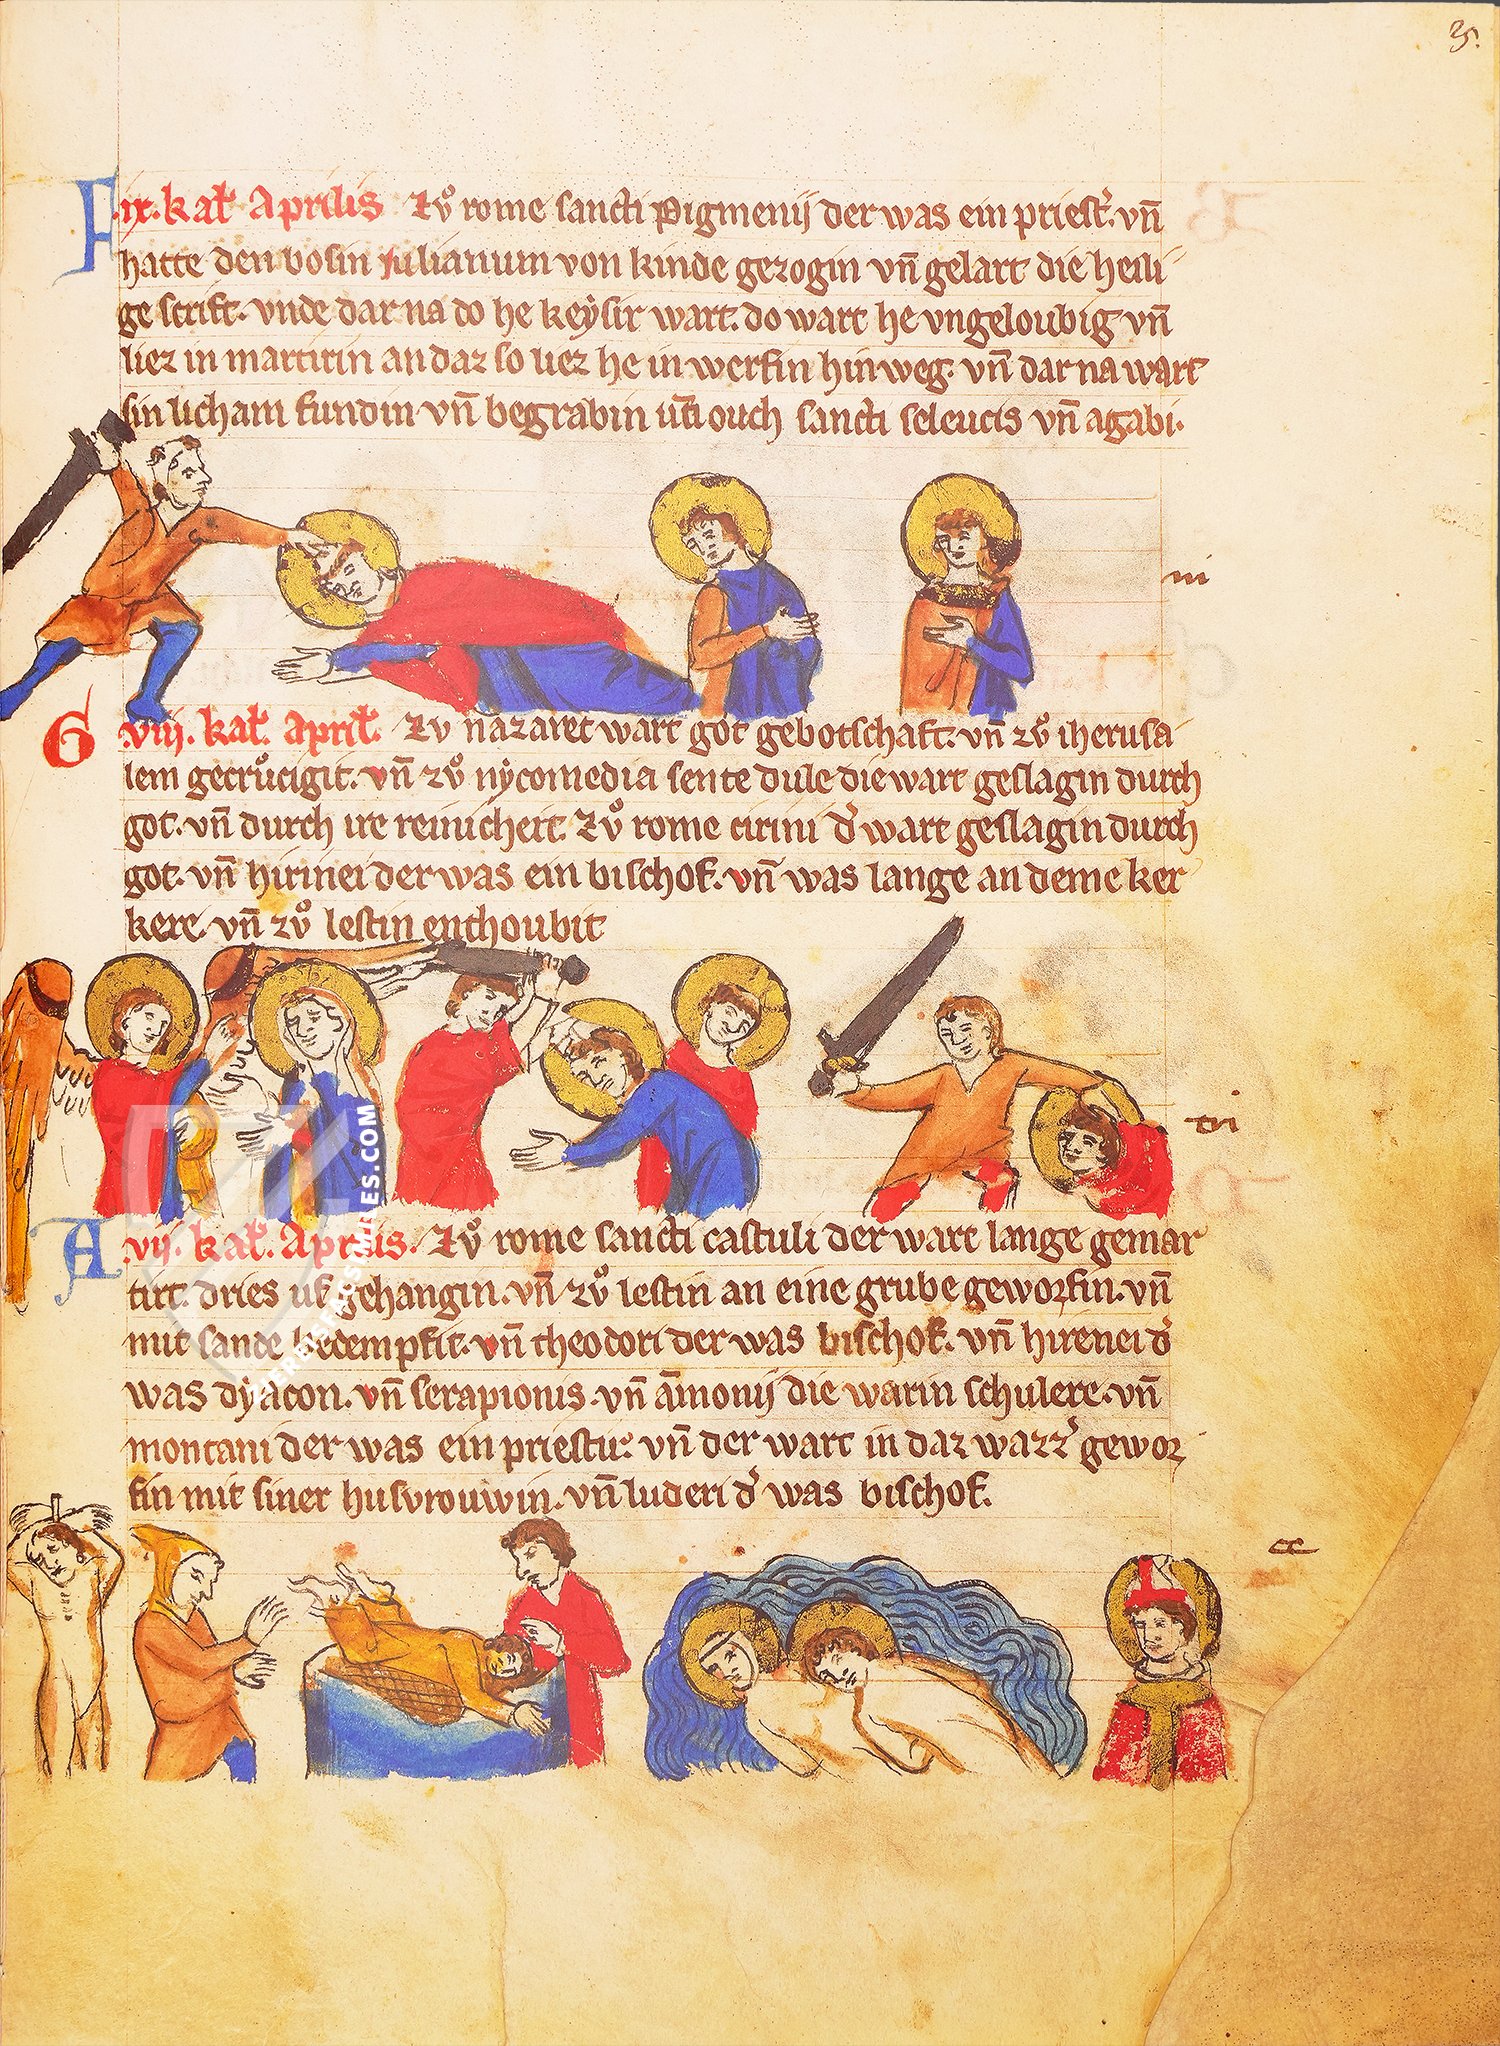 35.
F .ix. kal̄ Aprilis Zů rome sancti Pigmenij der was ein priest̉. vn̄
hatte den bosin iulianum von kinde gezogin vn̄ gelart die heili
ge scrift. vnde dar na do he keẏsir wart. do wart he vngeloubig vn̄
liez in martirin an daz so liez he in werfin hin weg. vn̄ dar na wart
sin licham fundin vn̄ begrabin ouch sancti seleucis vn̄ agabi.
iii
G viij. kal̄. April̄. Zv nazaret wart got gebotschaft. vn̄ zů iherusa
lem gecrůcigit. vn̄ zů nẏcomedia sente dule die wart geslagin durch
got. vn̄ durch ire reinicheit. Zů rome cirini d̉ wart geslagin durch
got. vn̄ hirinei der was ein bischof. vn̄ was lange an deme ker
kere. vn̄ zů lestin enthoubit
A vij. kal̄. Aprilis. Zů rome sancti castuli der wart lange gemar
tirt. dries uf gehangin. vn̄ zů lestin an eine grube geworfin. vn̄
mit sande bedempfit. vn̄ theodori der was bischof. vn̄ hirenei d̉
was dẏacon. vn̄ serapionis. vn̄ am̄onij die warin schulere. vn̄
montani der was ein priestir. vn̄ der wart in daz wazz̉ gewor
fin mit siner husvrouwin. vn̄ luderi d̉ was bischof.
FACSIMILES.COM